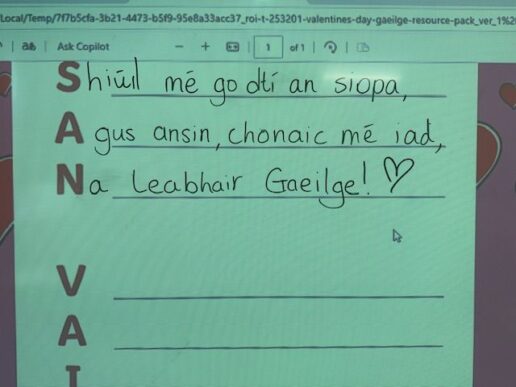 Local/Temp/7f7b5cfa-3b21-4473-b5f9-95e8a33acc37_roi-t-253201-valentines-day-gaeilge-resource-pack_ver_1%20
Ask Copilot − + 1 of 1
Shiúil mé go dtí an siopa,
Agus ansin, chonaic mé iad,
Na Leabhair Gaeilge! ♡
V
A